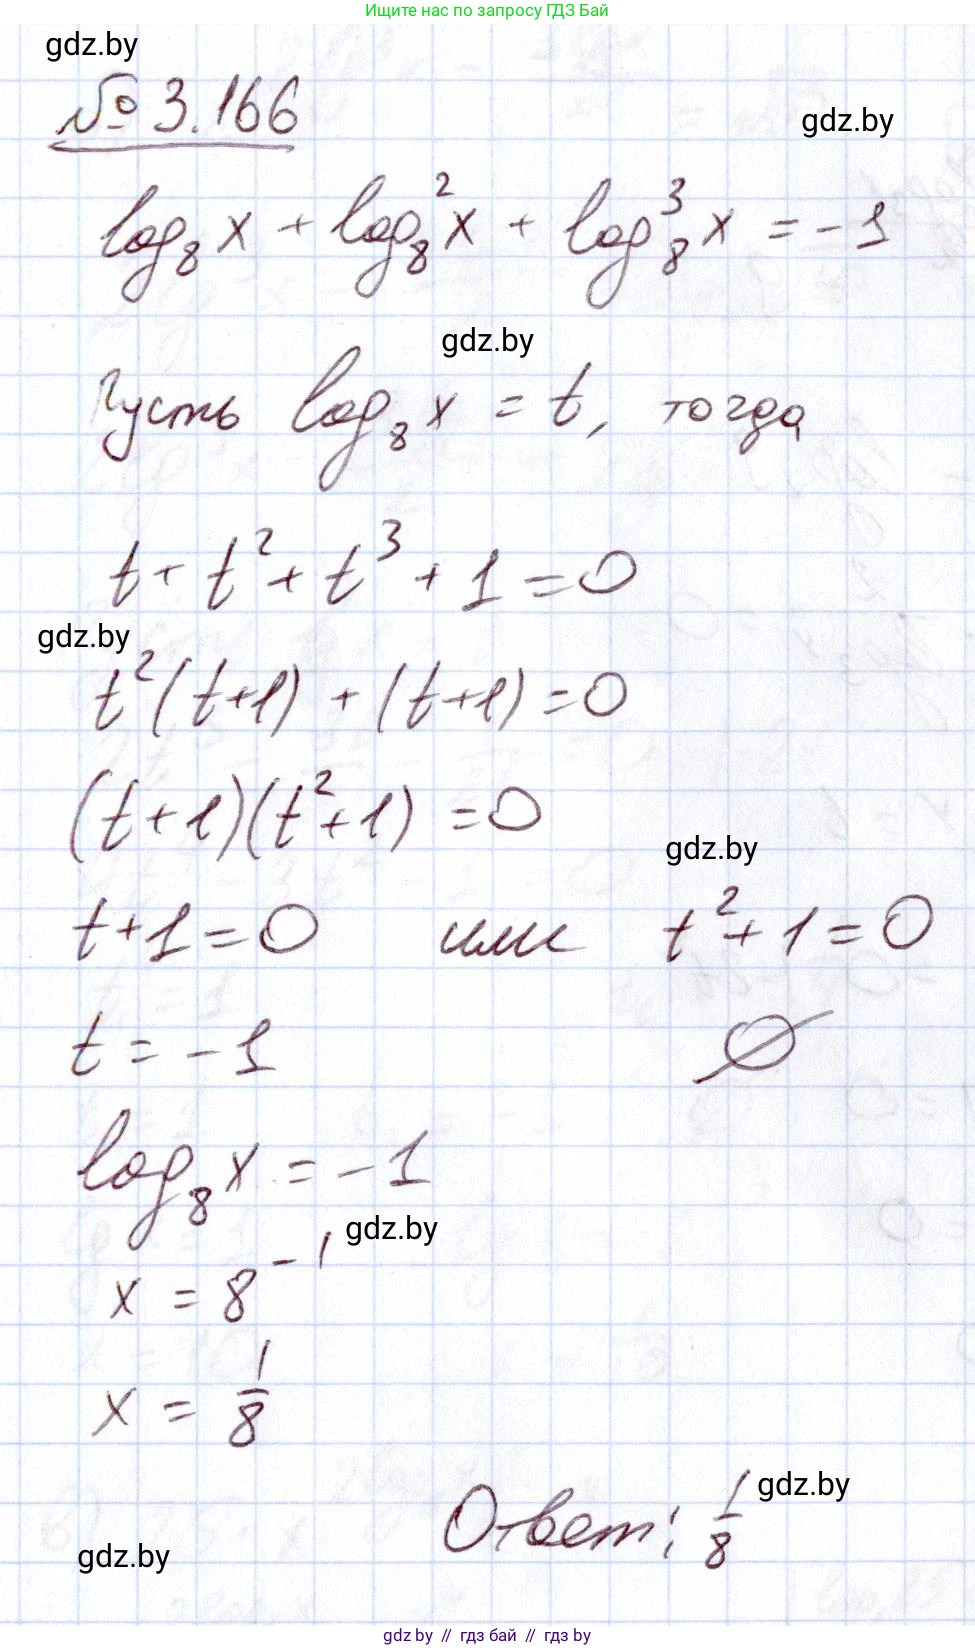 Ищите нас по запросу ГДЗ Бай
gdz.by
№ 3.166
gdz.by
log₈ x + log₈² x + log₈³ x = -1
gdz.by
Пусть log₈ x = t, тогда
t + t² + t³ + 1 = 0
gdz.by
t²(t+1) + (t+1) = 0
(t+1)(t²+1) = 0
gdz.by
t+1=0 или t²+1=0
t = -1 ∅
log₈ x = -1
gdz.by
x = 8⁻¹
x = 1/8
gdz.by
Ответ: 1/8
gdz.by
gdz.by // гдз бай // гдз by